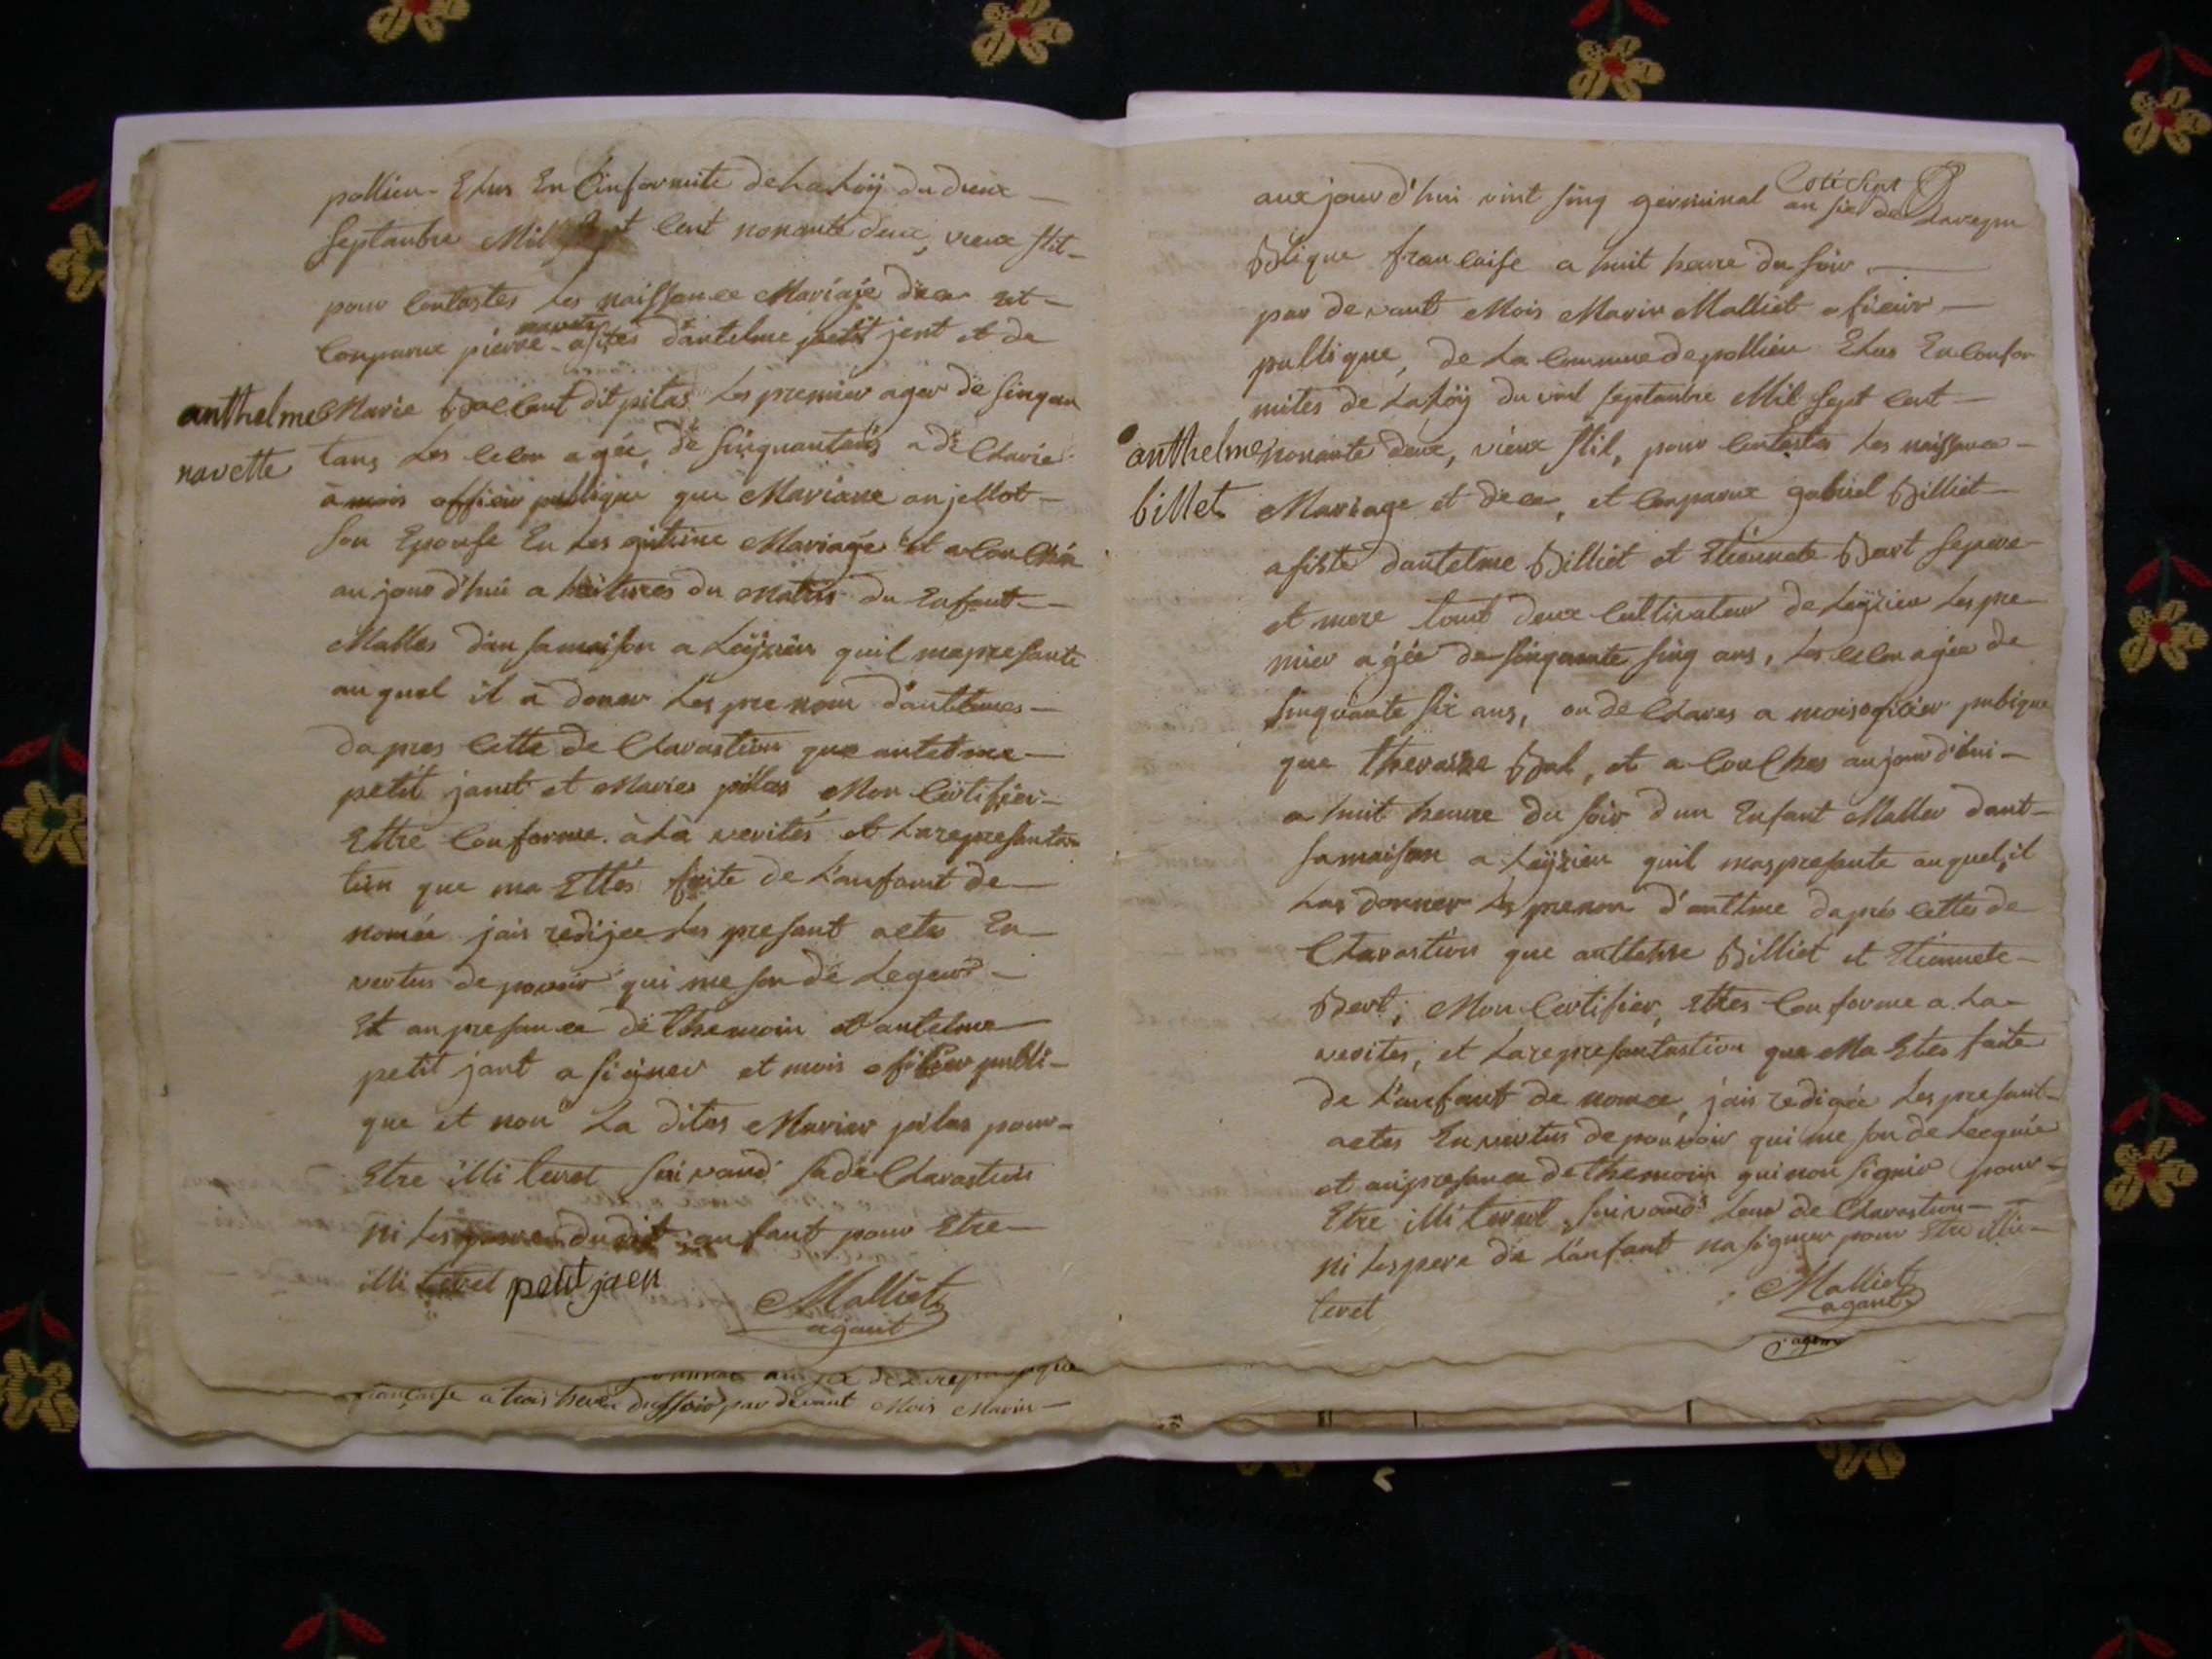 pollieu Elus En Cinformite de La Loÿ du dieux
Septanbre Mil Sept Cent nonante deux, vieux stil
pour Contastes Les naissance Mariaje deces et
Conparue pierre navete asistes d'antelme petit jent et de
anthelme
navette
Marie Ballant dit pilas Les premier ager de sinquan
tans Les Celon agée, de sinquantans a de Clarée
a mois officier publique que Mariane anjellot
son Epouse En Les gitime Mariage Et a Couchée
aujourd'hui a huitures du Matin du Enfant
Malles dan sa maison a Loÿzieu quil mapresante
auquel il a doner Les prenom d'antelmes
dapres Cette de Claration que antelme
petit jant et Maries pilas Mon Certifier
Ettre Conforme à La verités et La represanta
tion que ma Ettés faite de L'anfant de
nomée jais redijee Les presant actes En
vertus de povoir qui me son de Leguer
Et an presance de themoin et antelme
petit jant a signer et mois ofisier publi-
que et non La dites Marier pilas pour
Etre illi teret suivand sa de Claration
ni Les pere du dit anfant pour Etre
illi teret petit jaen
Malliet
agant
an six de La republique
francaise a trois heure du soir par devant Mois Marin
Coté Sept
auxjourd'hui vint sinq germinal an six de La repu
Blique francaise a huit heure du soir
par devant Mois Marin Malliet ofisier
publique, de La Commune de pollieu Elus En Confor
mites de La Loÿ du vint septanbre Mil Sept Cent
anthelme
billet
nonante deux, vieux stil, pour Contastes Les naissance
Mariage et dece, et Conparue gabriel Billiet
asiste dantelme Billiet et Etiennete Bert se pere
et mere tout deux Cultivateur de Loÿzieu Les pre
mier agée de sinquante sinq ans, Les Celon agée de
sinquante six ans, on de Clares a mois oficier pubique
que therasse Bal, et a Couches aujourd'hui
a huit heure du soir dun Enfant Maller dant
sa maison a Loÿzieu quil mas presante auquel il
Las donner Les prenon d'antelme daprés Cettes de
Claration que antelme Billiet et Etiennete
Bert, Mon Certifier, Ettes Conforme a La
verites, et La represantastion que Ma Etes faite
de L'anfant de nomée, jais redigée Les presant
actes En vertus de pouvoir qui me son de Leguée
et an presance de themoin qui non signier pour
Etre illi teret suivand Leur de Claration
ni Les pere de L'anfant na signier pour Etre illi
teret
Malliet
agant
agant